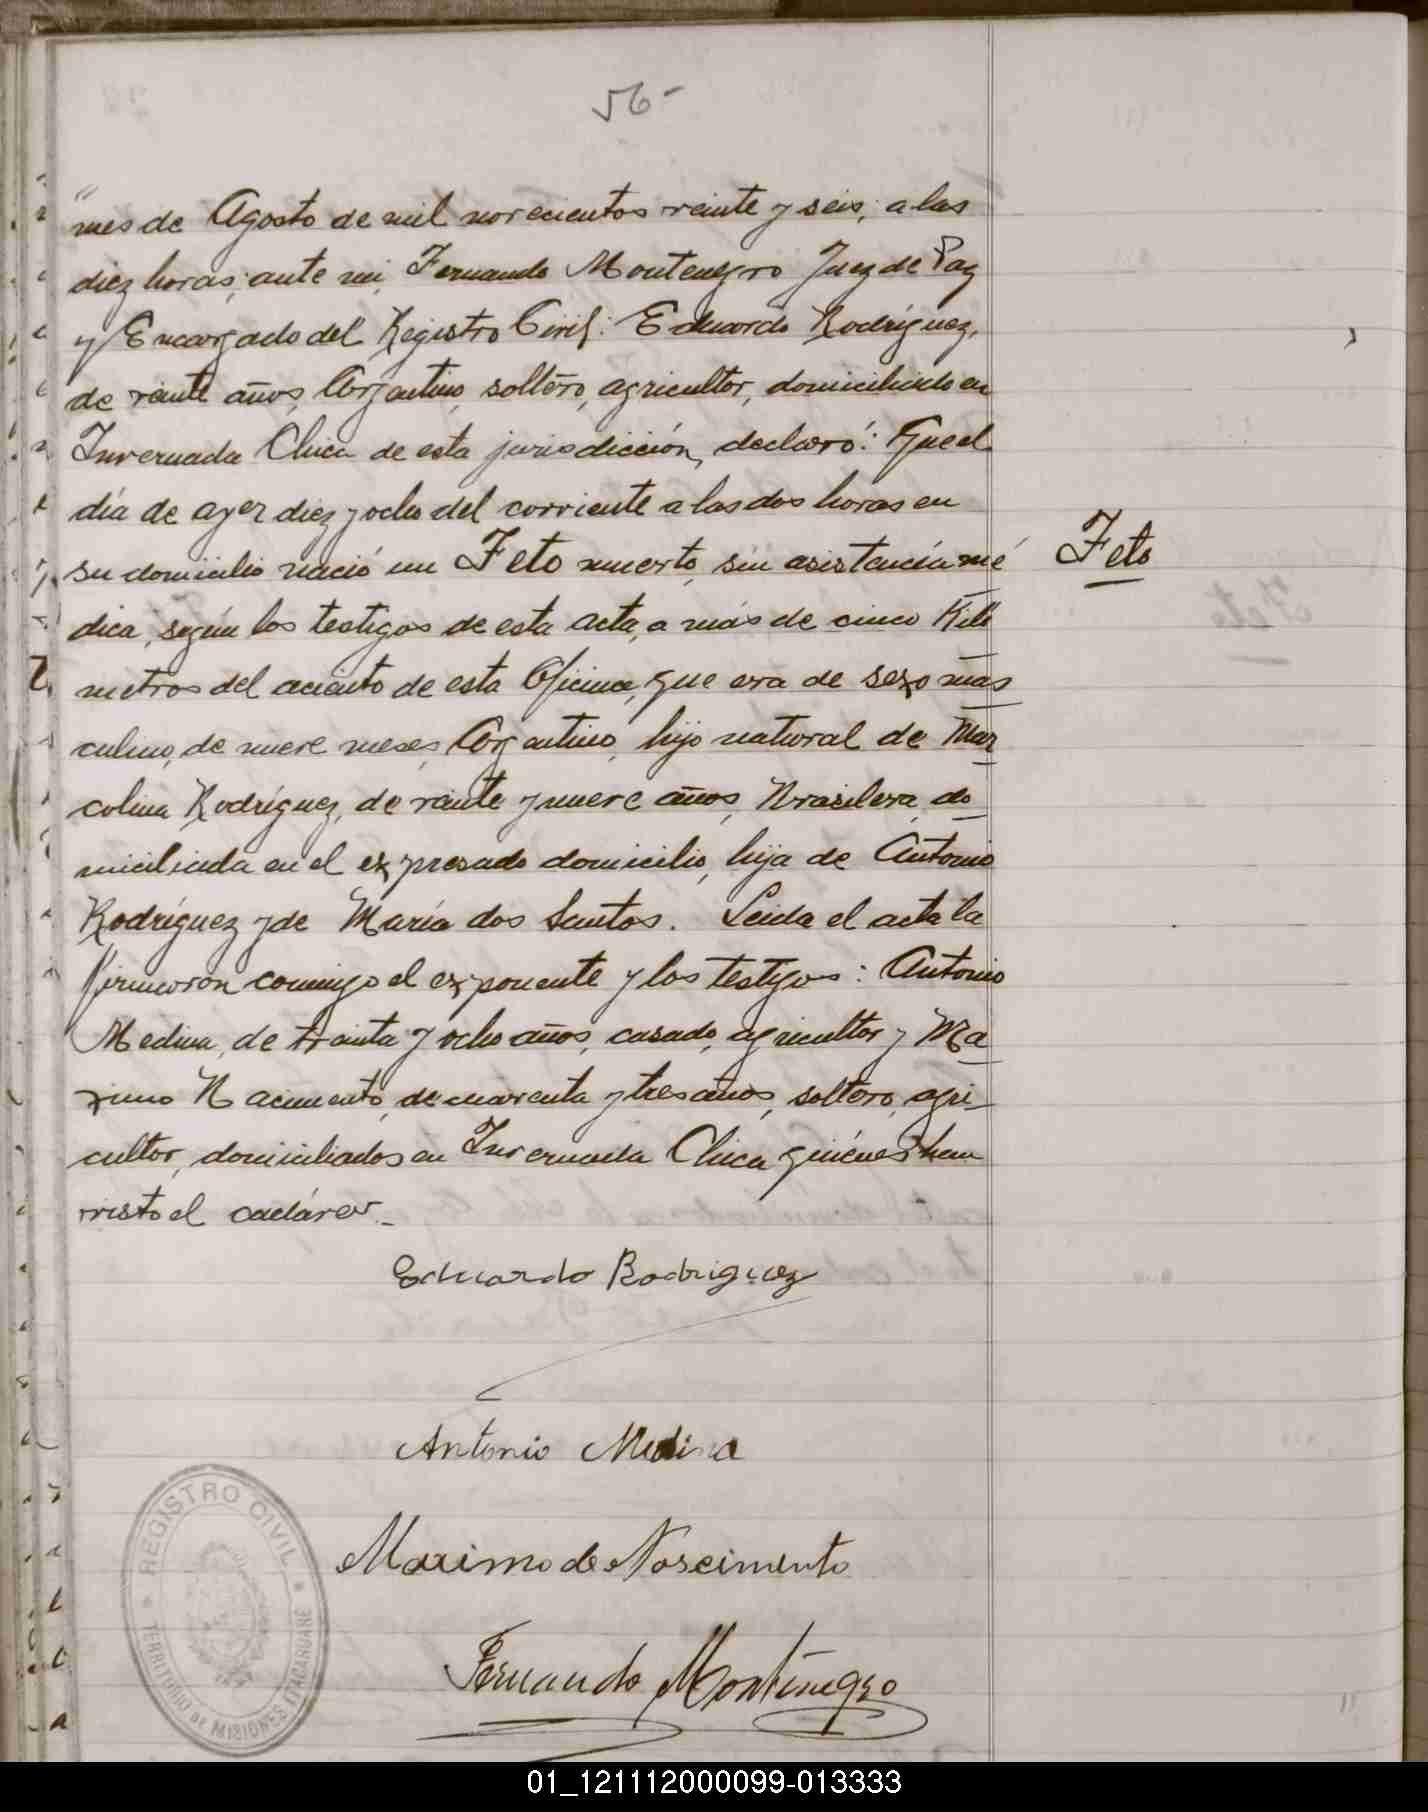 56-
mes de Agosto de mil novecientos veinte y seis, a las
diez horas, ante mi, Fernando Montenegro Juez de Paz
y Encargado del Registro Civil: Eduardo Rodríguez,
de veinte años, Argentino, soltero, agricultor, domiciliado en
Invernada Chica de esta jurisdicción, declaró: Que el
día de ayer diez y ocho del corriente a las dos horas en
su domicilio nació un Feto muerto, sin asistencia mé
Feto
dica, según los testigos de esta acta, a más de cinco Kiló
metros del aciento de esta Oficina, que era de sexo mas
culino, de nueve meses, Argentino, hijo natural de Mar
colina Rodríguez, de veinte y nueve años, Brasilera, do
miciliada en el expresado domicilio, hija de Antonio
Rodríguez y de María dos Santos. Leida el acta la
firmaron conmigo el exponente y los testigos: Antonio
Medina, de treinta y ocho años, casado, agricultor y Má
ximo Nacimento, de cuarenta y tres años, soltero, agri-
cultor, domiciliados en Invernada Chica quiénes han
visto el cadáver.-
Eduardo Rodriguez
Antonio Medina
Maximo de Nascimento
Fernando Montenegro
REGISTRO CIVIL
TERRITORIO DE MISIONES ITACARUARE
01_121112000099-013333